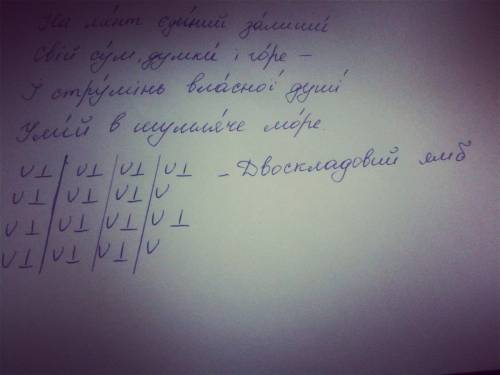 На ме́нт єди́ний за́лиши́
Свій су́м, думки́ і го́ре –
І стру́мінь вла́сної душі́
Ули́й в шумля́че мо́ре.
∪⊥/∪⊥/∪⊥/∪⊥ – Двоскладовий ямб
∪⊥/∪⊥/∪⊥/∪
∪⊥/∪⊥/∪⊥/∪⊥
∪⊥/∪⊥/∪⊥/∪